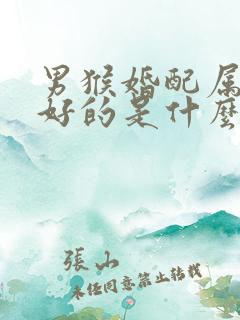 男猴婚配属
好的是什麽
張山
未经同意禁止转载